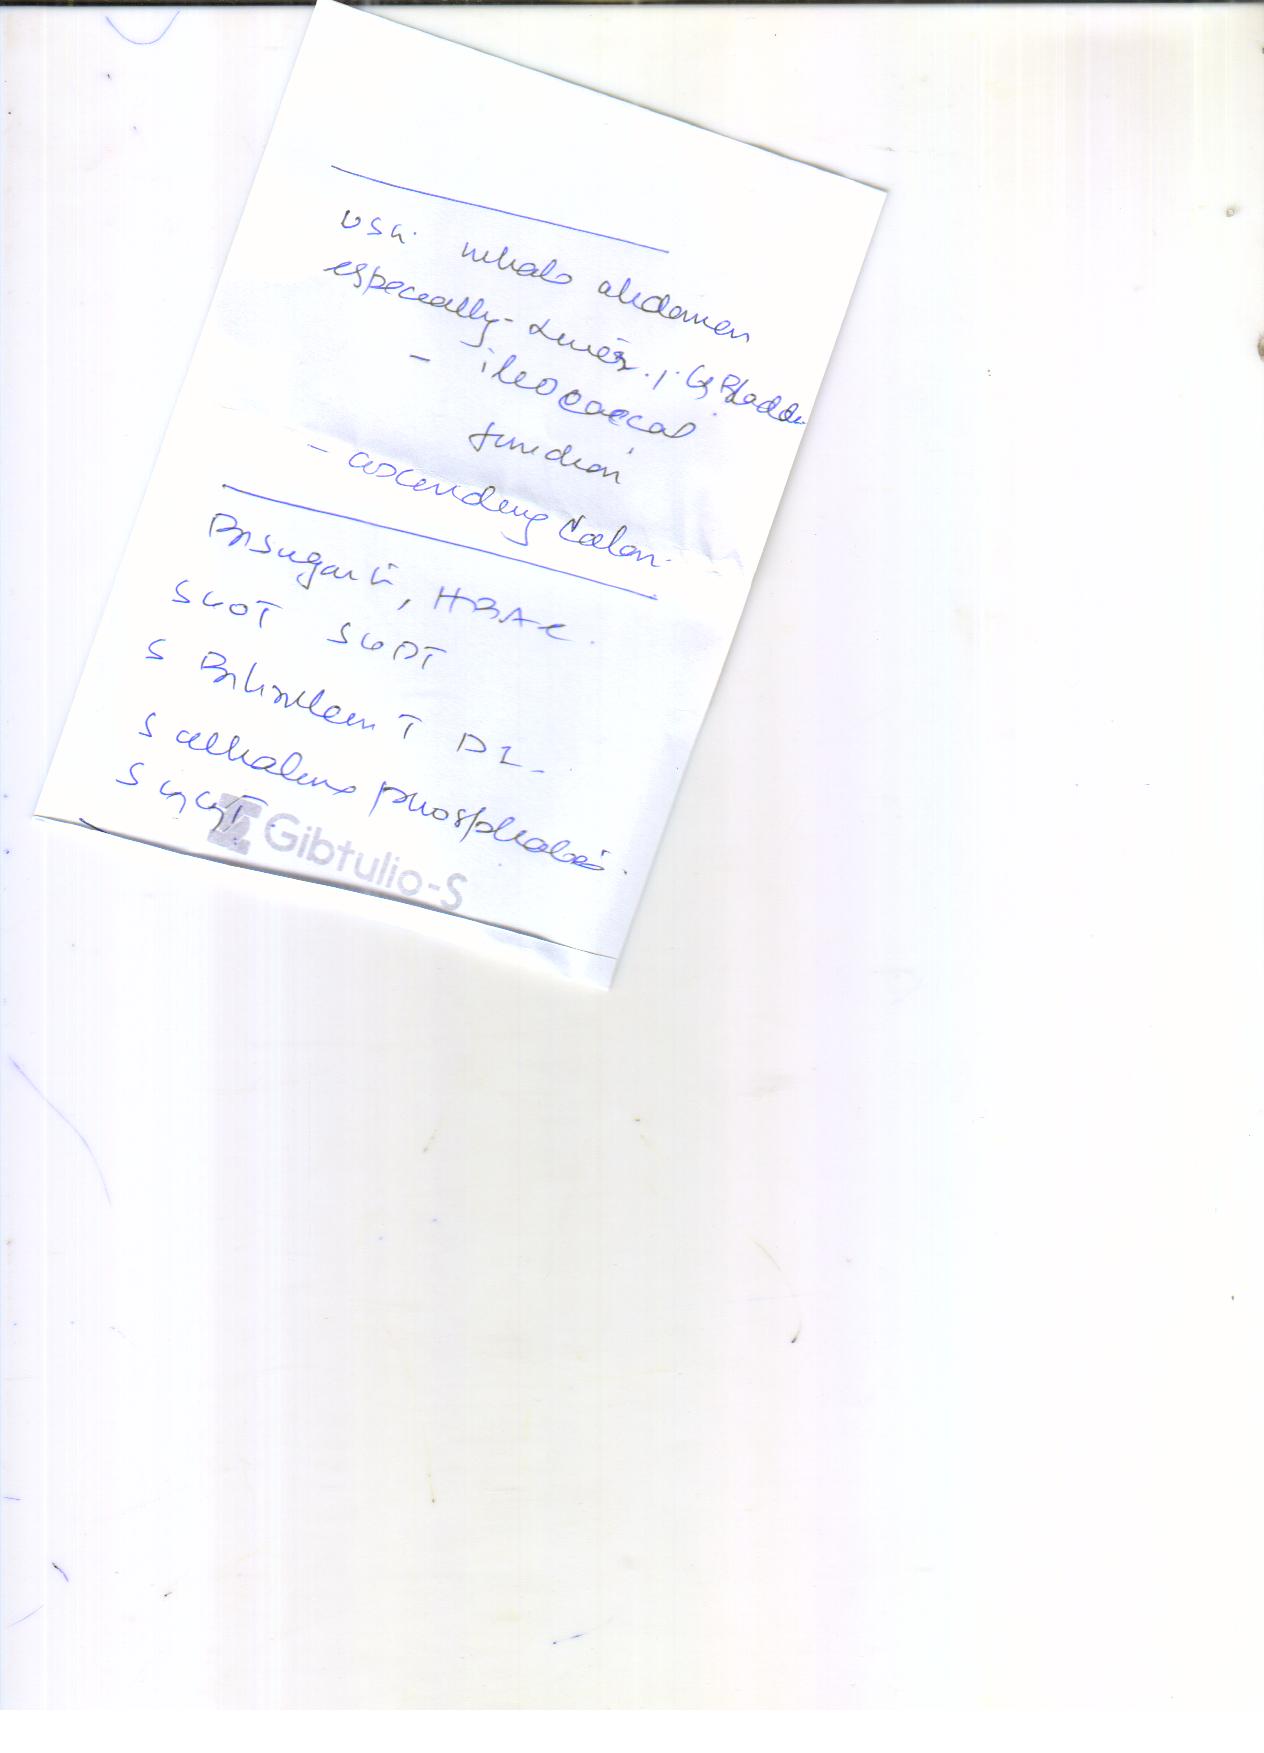 USG. whole abdomen
especially - Liver, G Bladder
- ileocaecal
junction
- ascending Colon.
Bl sugar F, HBA1c.
SGOT SGPT
S Bilirubin T D I -
S alkaline phosphatase.
S GGT.
Gibtulio-S